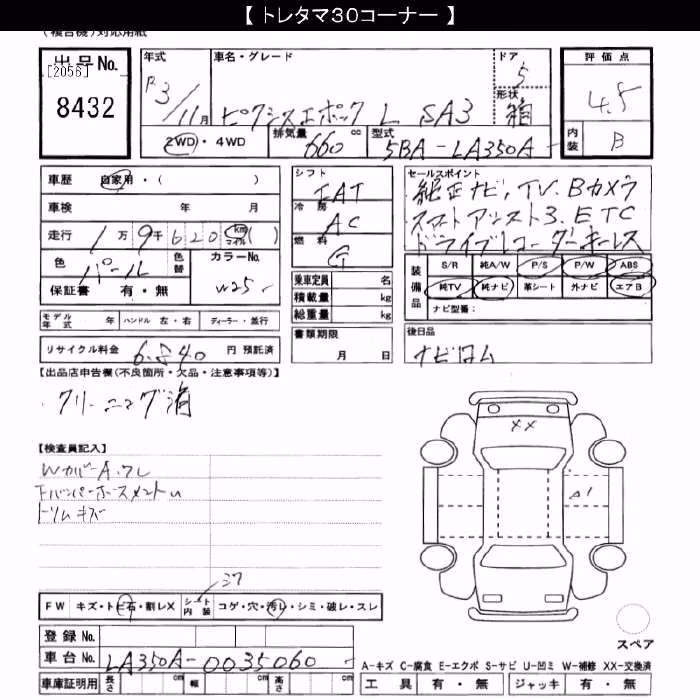 【 トレタマ３０コーナー 】
(複合機)対応用紙
出品No.
[2056]
8432
年式
R3/11月
車名・グレード
ピクシスエポック L SA3
ドア
5
形状
箱
評価点
4.5
内装
B
2WD・4WD
排気量
660 cc
型式
5BA-LA350A-
車歴 自家用・( )
車検 年 月
走行 1万9千620 km マイル ( )
色 パール 色替 カラーNo. W25-
保証書 有・無
シフト
FAT
冷房
AC
燃料
G
セールスポイント
純正ナビ,TV.Bカメラ
スマートアシスト3.ETC
ドライブレコーダーキーレス
装備品
S/R 純A/W P/S P/W ABS
純TV 純ナビ 革シート 外ナビ エアB
ナビ型番:
乗車定員 名
積載量 kg
総重量 kg
モデル年式 年 ハンドル 左・右 ディーラー・並行
書類期限
月 日
後日品
ナビロム
リサイクル料金 6,840 円 預託済
【出品店申告欄(不良箇所・欠品・注意事項等)】
・クリーニング済
【検査員記入】
Wカバー
トリムキズ
XX
FW キズ・トビ石・割レX シート内装 コゲ・穴・汚レ・シミ・破レ・スレ
登録No.
車台No. LA350A-0035060-
車庫証明用 長さ cm 幅 cm 高さ cm
スペア
A-キズ C-腐食 E-エクボ S-サビ U-凹ミ W-補修 XX-交換済
工具 有・無 ジャッキ 有・無